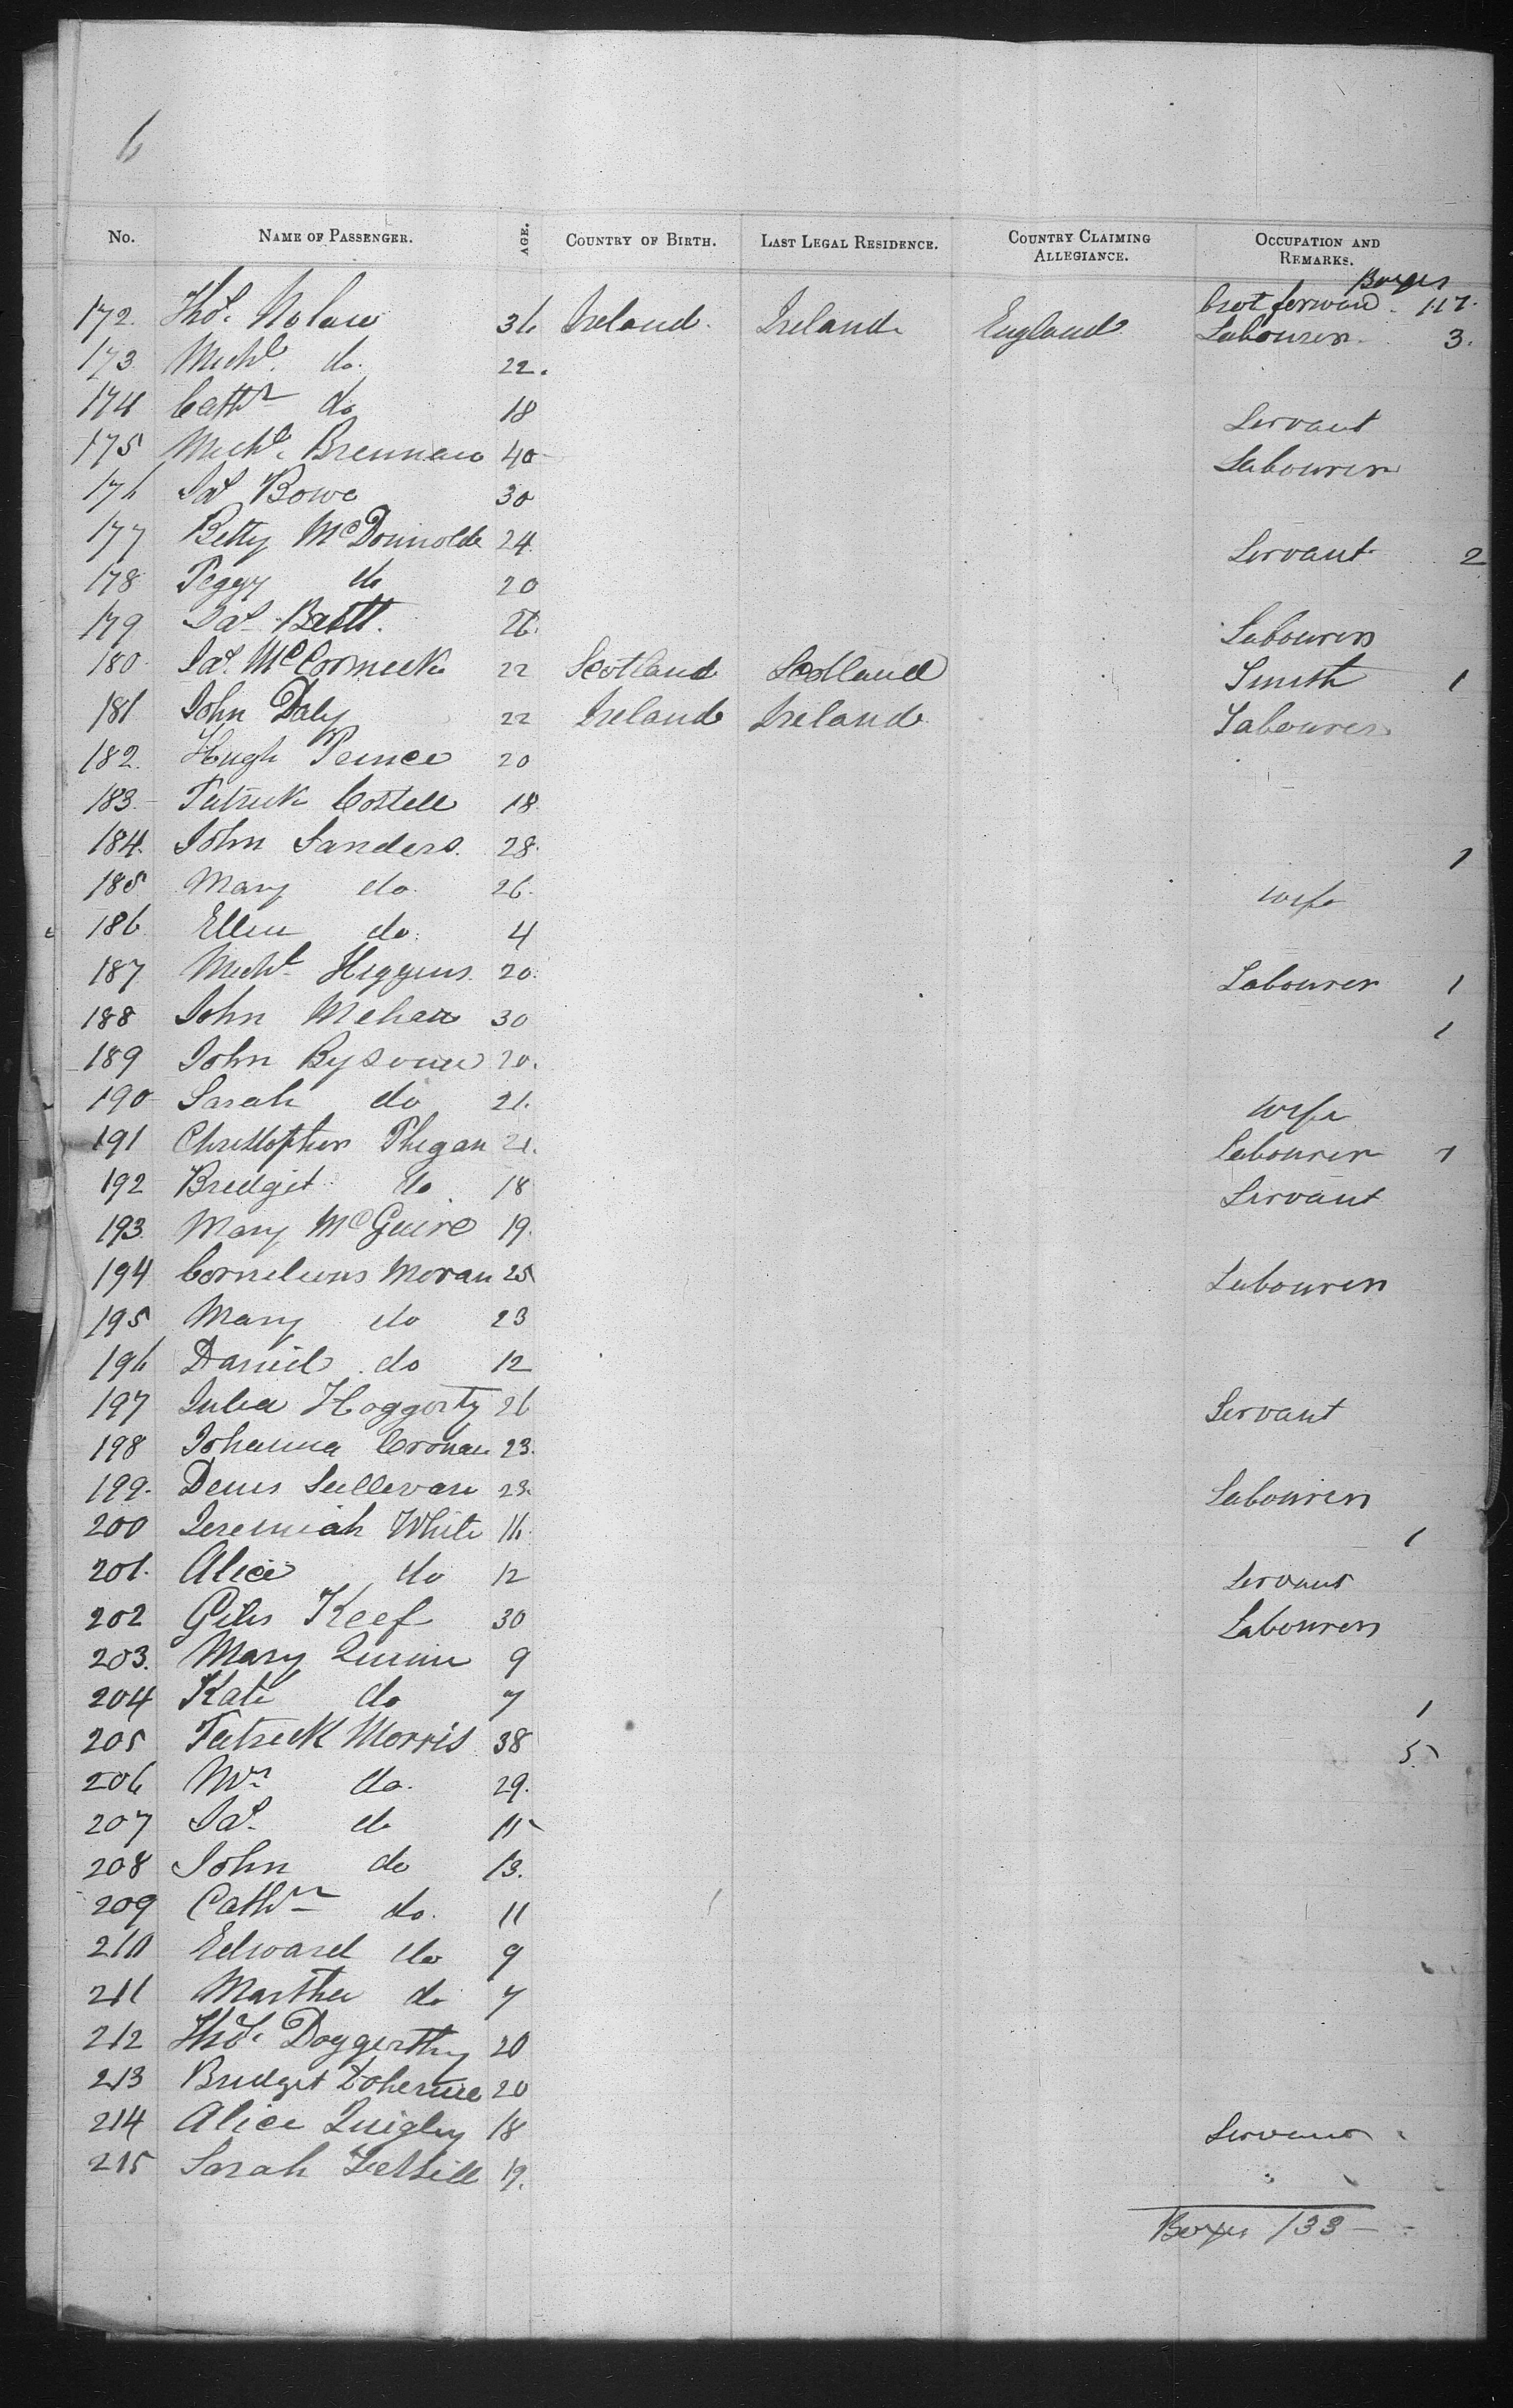 6
No. NAME OF PASSENGER. AGE. COUNTRY OF BIRTH. LAST LEGAL RESIDENCE. COUNTRY CLAIMING ALLEGIANCE. OCCUPATION AND REMARKS.
Boxes
brot forward. 117.
172. Thos. Nolan 36 Ireland. Ireland England Labourer. 3.
173 Michl. do. 22.
174 Cathr do 18 Servant
175 Michl. Brennan 40 Labourer
176 Jas Bowe 30
177 Betty McDonnold 24 Servant 2
178 Peggy do 20
179 Jas 26. Labourer
180 Jas. McCormick 22 Scotland Scotland Smith 1
181 John Daly 22 Ireland Ireland Labourer
182. Hugh 20
183. Patrick Costell 18
184. John Sanders. 28. 1
185 Mary do 26. wife
186 Ellen do. 4
187 Michl Higgins. 20. Labourer 1
188 John Mehan 30 1
189 John 20.
190 Sarah do 21. wife
191 Christopher Phegan 21. Labourer 1
192 Bridget do 18 Servant
193. Mary McGuire 19.
194 Cornelious Moran 25 Labourer
195 Mary do 23
196 Daniel do 12
197 Julia Hoggorty 26 Servant
198 Johanna Cronan 23.
199. Denis Sullevan 23. Labourer
200 Jeremiah White 16 1
201. Alice do 12 Servant
202 Giles Keef 30 Labourer
203. Mary Quinn 9
204 Kate do 7 1
205 Patrick Morris 38 5
206 Mrs do. 29.
207 Jas. do 15
208 John do 13.
209 Cathr do. 11
210 Edward do 9
211 Martha do 7
212 Thos. Doggerthy 20
213 Bridget 20
214 Alice Quigley 18 Servant
215 Sarah 19.
Boxes 133